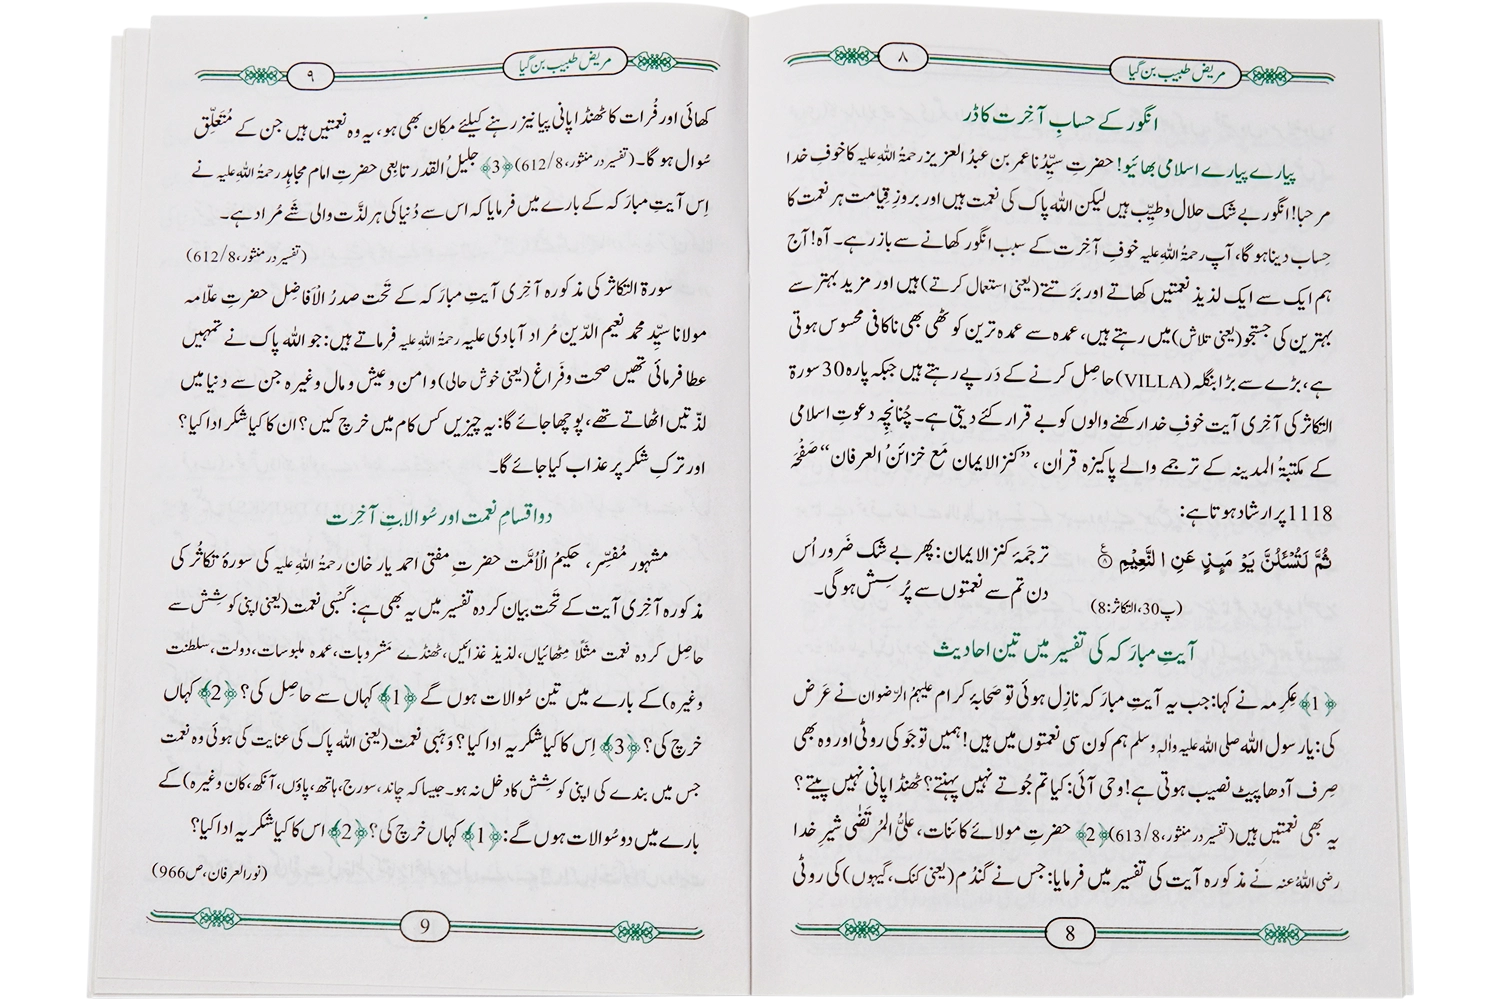 مریض طبیب بن گیا
۸
انگور کے حسابِ آخرت کا ڈر
پیارے پیارے اسلامی بھائیو! حضرتِ سیِّدُنا عمر بن عبدُ العزیز رحمۃُ اللہِ علیہ کا خوفِ خدا
مرحبا! انگور بے شک حلال و طیِّب ہیں لیکن اللہ پاک کی نعمت ہیں اور بروزِ قِیامت ہر نعمت کا
حِساب دینا ہو گا، آپ رحمۃُ اللہِ علیہ خوفِ آخِرت کے سبب انگور کھانے سے باز رہے۔ آہ! آج
ہم ایک سے ایک لذیذ نعمتیں کھاتے اور بَرَتتے (یعنی استعمال کرتے) ہیں اور مزید بہتر سے
بہترین کی جستجو (یعنی تلاش) میں رہتے ہیں، عمدہ سے عمدہ ترین کوٹھی بھی ناکافی محسوس ہوتی
ہے، بڑے سے بڑا بنگلہ (VILLA) حاصِل کرنے کے دَرپے رہتے ہیں جبکہ پارہ 30 سورۃ
التکاثر کی آخری آیت خوفِ خدا رکھنے والوں کو بے قرار کئے دیتی ہے۔ چُنانچِہ دعوتِ اسلامی
کے مکتبۃُ المدینہ کے ترجمے والے پاکیزہ قراٰن ، ”کنز الایمان مَع خزائنُ العرفان“ صَفْحَہ
1118 پر ارشاد ہوتا ہے:
ثُمَّ لَتُسْـَٔلُنَّ یَوْمَىٕذٍ عَنِ النَّعِیْمِ ۠﴿۸﴾
(پ30، التکاثر:8)
ترجَمۂ کنز الایمان: پھر بے شک ضَرور اُس
دن تم سے نعمتوں سے پُرسِش ہوگی۔
آیتِ مبارَکہ کی تفسیر میں تین احادیث
﴿1﴾ عِکرِمہ نے کہا: جب یہ آیتِ مبارَکہ نازِل ہوئی تو صَحابۂ کرام علیہمُ الرِّضوان نے عَرض
کی: یارسول اللہ صلی اللہ علیہ والہٖ وسلم ہم کون سی نعمتوں میں ہیں! ہمیں تو جَو کی روٹی اور وہ بھی
صِرف آدھا پیٹ نصیب ہوتی ہے! وحی آئی: کیا تم جُوتے نہیں پہنتے؟ ٹھنڈا پانی نہیں پیتے؟
یہ بھی نعمتیں ہیں (تفسیر در منثور، 613/8) ﴿2﴾ حضرتِ مولائے کائنات، علیُّ المُرتَضٰی شیرِ خدا
رضی اللہُ عنہ نے مذکورہ آیت کی تفسیر میں فرمایا: جس نے گندُم (یعنی کنک، گیہوں) کی روٹی
8
مریض طبیب بن گیا
۹
کھائی اور فُرات کا ٹھنڈا پانی پیا نیز رہنے کیلئے مکان بھی ہو، یہ وہ نعمتیں ہیں جن کے مُتَعلِّق
سُوال ہو گا۔ (تفسیر در منثور، 612/8) ﴿3﴾ جلیلُ القدر تابِعی حضرتِ امام مجاہِد رحمۃُ اللہِ علیہ نے
اِس آیتِ مبارَکہ کے بارے میں فرمایا کہ اس سے دُنیا کی ہر لذَّت والی شَے مُراد ہے۔
(تفسیر در منثور، 612/8)
سورۃ التکاثر کی مذکورہ آخِری آیتِ مبارَکہ کے تَحت صدرُ الْاَفاضِل حضرتِ علّامہ
مولانا سیِّد محمد نعیم الدّین مُراد آبادی علیہ رحمۃُ اللہِ علیہ فرماتے ہیں: جو اللہ پاک نے تمہیں
عطا فرمائی تھیں صحت و فَراغ (یعنی خوش حالی) و امن و عیش و مال وغیرہ جن سے دنیا میں
لذّتیں اٹھاتے تھے، پوچھا جائے گا: یہ چیزیں کس کام میں خرچ کیں؟ ان کا کیا شکر ادا کیا؟
اور ترکِ شکر پر عذاب کیا جائے گا۔
دو اقسامِ نعمت اور سُوالاتِ آخِرت
مشہور مُفَسِّر، حکیمُ الْاُمَّت حضرتِ مفتی احمد یار خان رحمۃُ اللہِ علیہ کی سورۂ تکاثُر کی
مذکورہ آخِری آیت کے تَحت بیان کردہ تفسیر میں یہ بھی ہے: کَسْبی نعمت (یعنی اپنی کوشش سے
حاصِل کردہ نعمت مثَلًا مِٹھائیاں، لذیذ غذائیں، ٹھنڈے مَشروبات، عمدہ ملبوسات، دولت، سلطنت
وغیرہ) کے بارے میں تین سُوالات ہوں گے ﴿1﴾ کہاں سے حاصِل کی؟ ﴿2﴾ کہاں
خرچ کی؟ ﴿3﴾ اِس کا کیا شکریہ ادا کیا؟ وَہبی نعمت (یعنی اللہ پاک کی عنایت کی ہوئی وہ نعمت
جس میں بندے کی اپنی کوشِش کا دخل نہ ہو۔ جیسا کہ چاند، سورج، ہاتھ، پاؤں، آنکھ، کان وغیرہ) کے
بارے میں دو سُوالات ہوں گے: ﴿1﴾ کہاں خرچ کی؟ ﴿2﴾ اس کا کیا شکریہ ادا کیا؟
(نور العرفان، ص966)
9